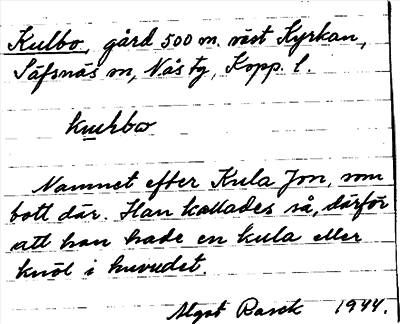 Kulbo, gård 500 m. väst Kyrkan,
Säfsnäs sn, Nås tg, Kopp. l.
Namnet efter Kula Jon, som
bott där. Han kallades så, därför
att han hade en kula eller
knöl i huvudet.
1944.